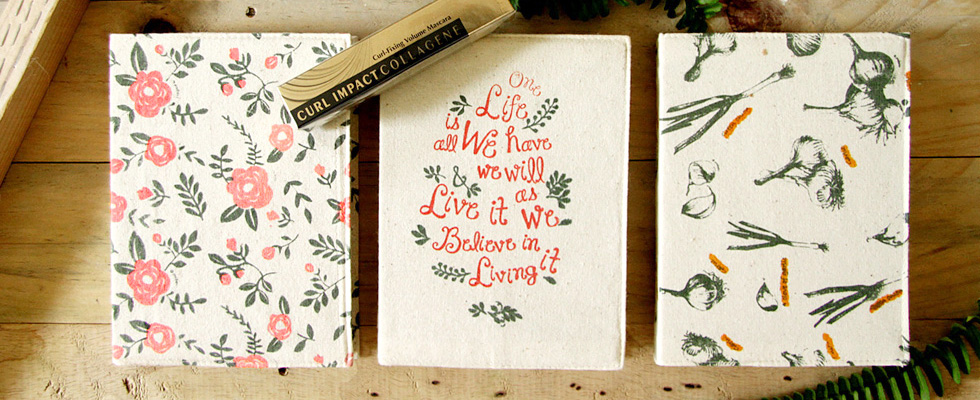 Curl-Fixing Volume Mascara
CURL IMPACT COLLAGENE
One
Life
is
all We have
& we will
Live it as we
Believe in
Living it